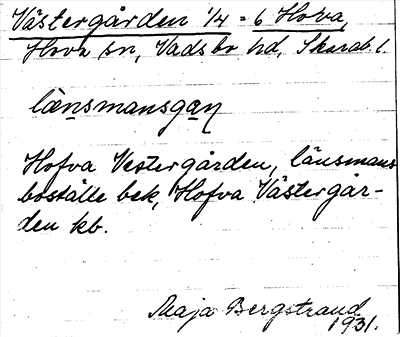 Västergården 1/4 = 6 Hova,
Hova sn, Vadsbo hd, Skarab. l.
länsmansgaṇ
Hofva Vestergården, länsmans
boställe bek, Hofva Västergår-
den kb.
Maja Bergstrand
1931.